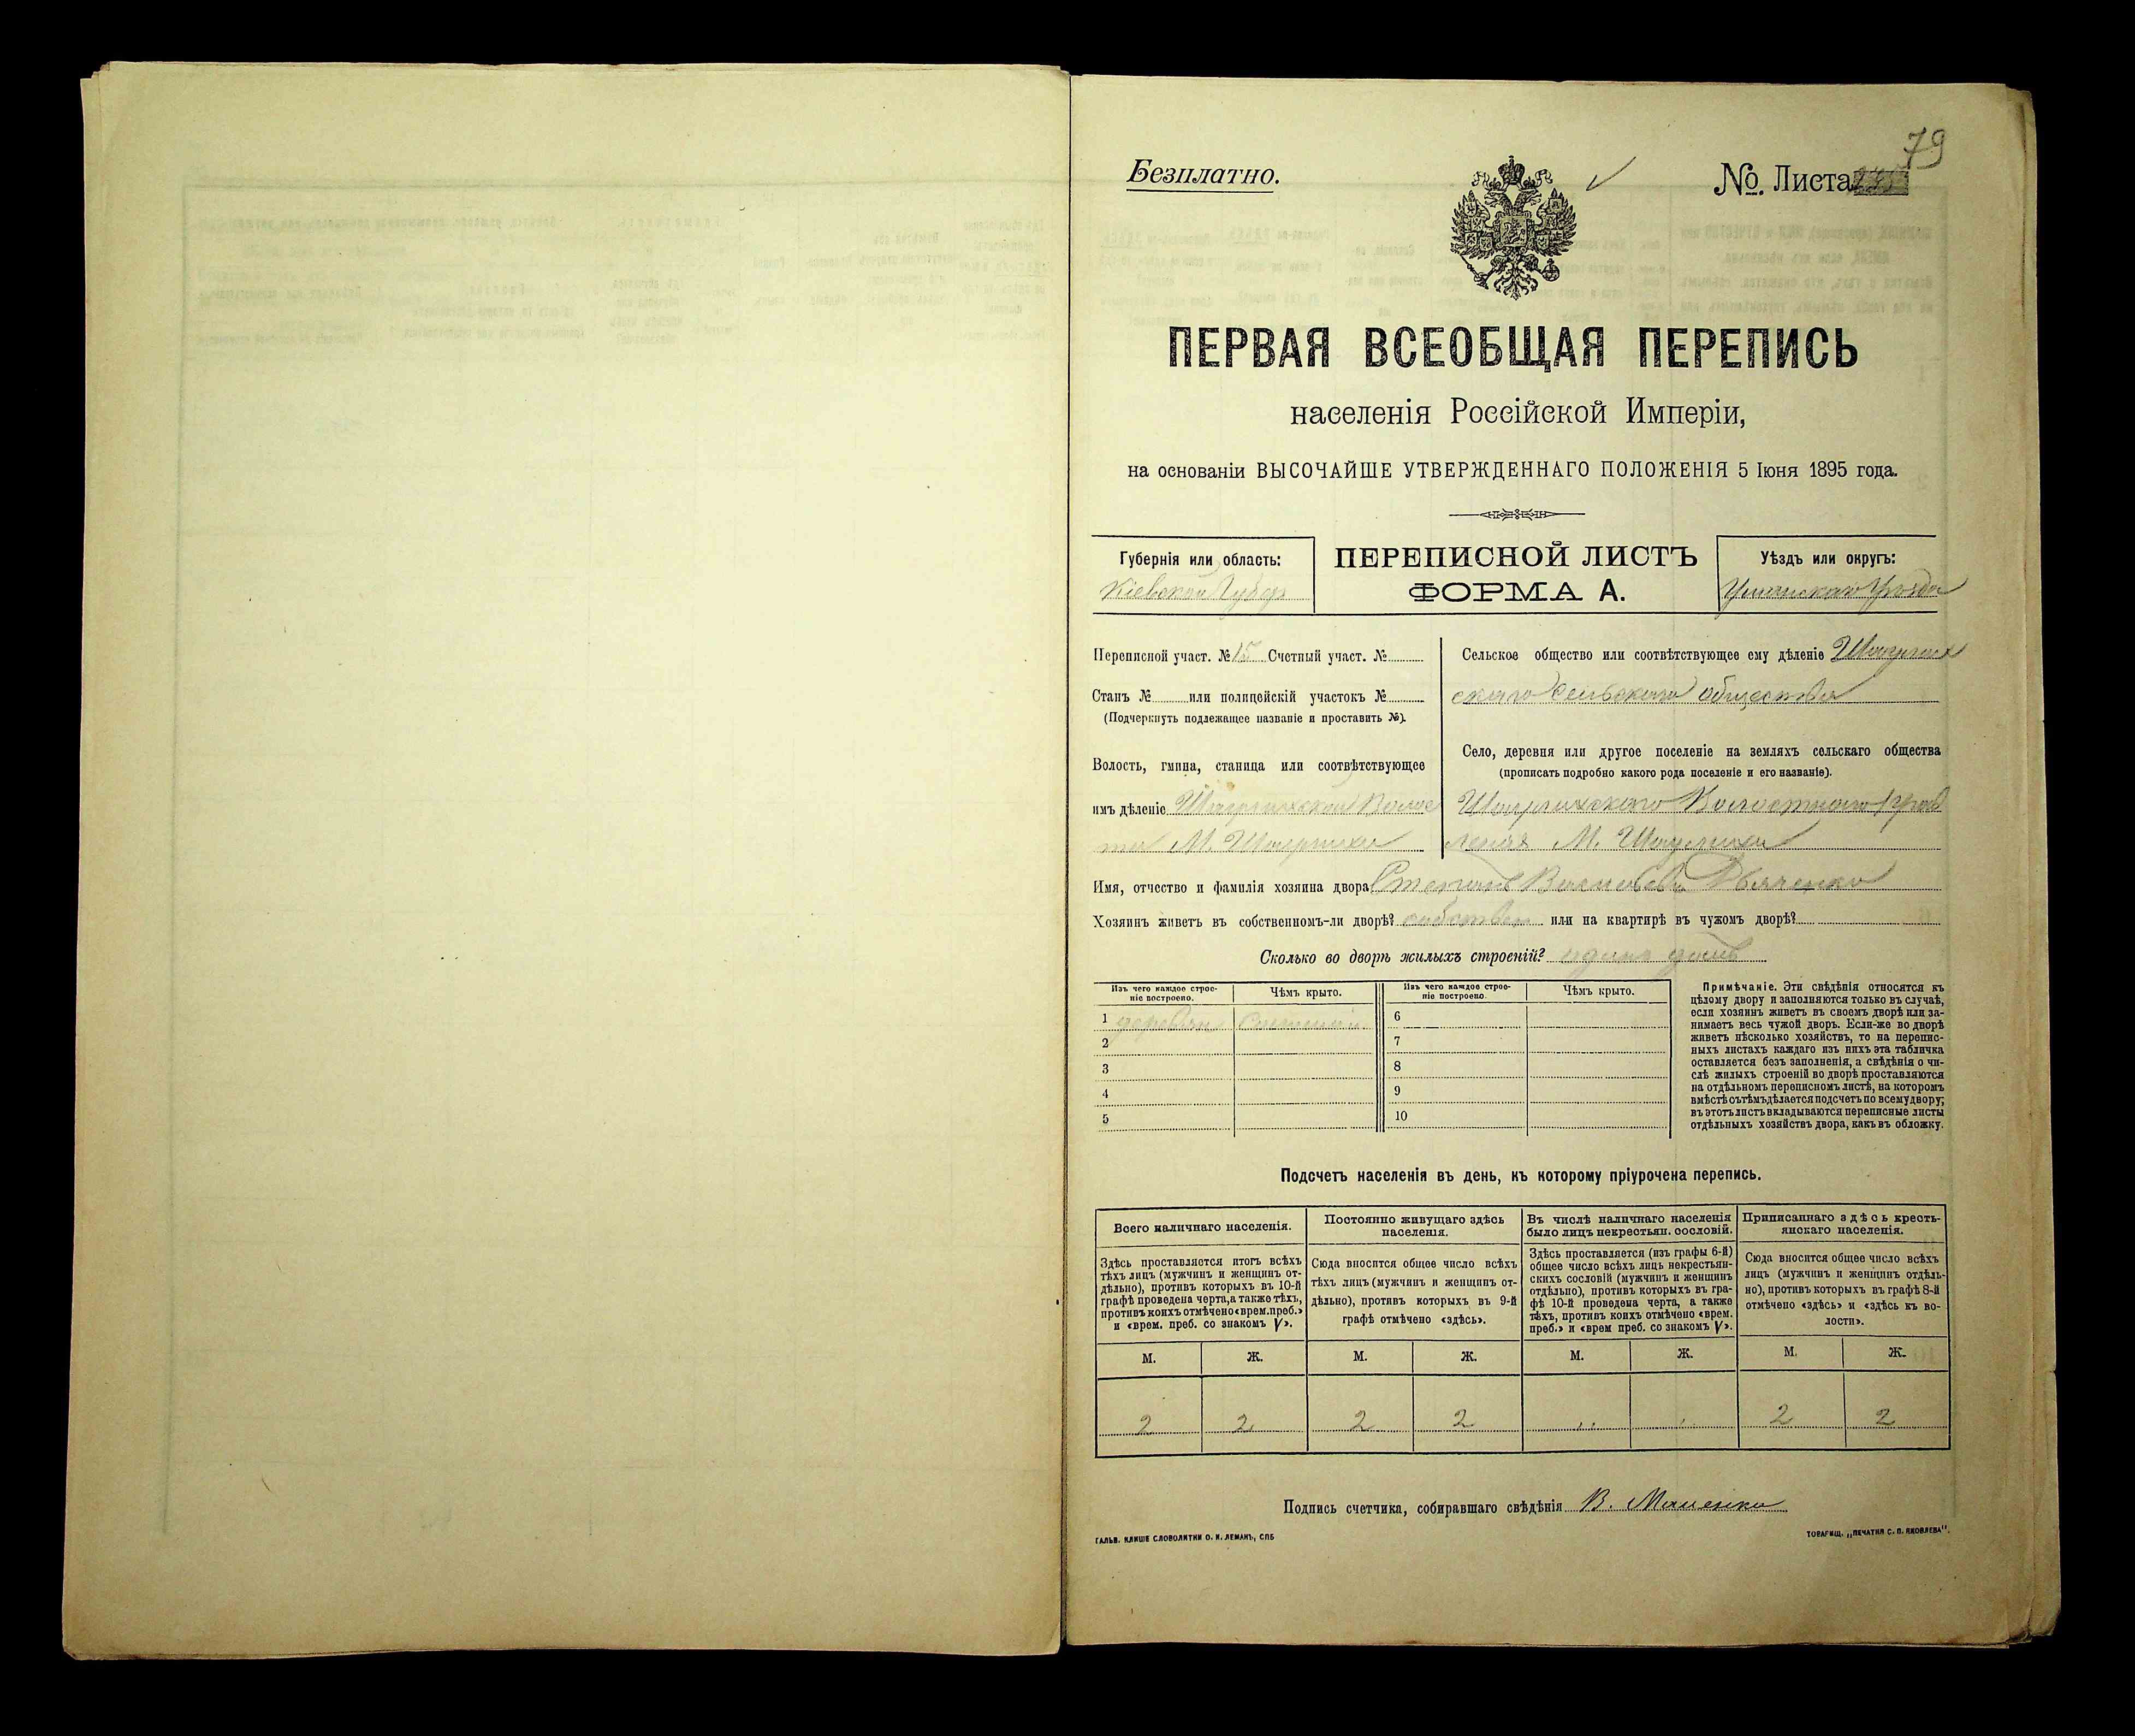 79
Безплатно.
№. Листа
ПЕРВАЯ ВСЕОБЩАЯ ПЕРЕПИСЬ
населенія Россійской Имперіи,
на основаніи ВЫСОЧАЙШЕ УТВЕРЖДЕННАГО ПОЛОЖЕНІЯ 5 Іюня 1895 года.
Губернія или область:
Кіевской Губер
ПЕРЕПИСНОЙ ЛИСТЪ
ФОРМА А.
Уѣздъ или округъ:
Уманскаго Уѣзда
Переписной участ. № 15 Счетный участ. №
Станъ № или полицейскій участокъ №
(Подчеркнуть подлежащее названіе и проставить №).
Волость, гмина, станица или соотвѣтствующее
имъ дѣленіе Шаулихской Волос
ти М. Шаулихи
Сельское общество или соотвѣтствующее ему дѣленіе Шаулих
скаго сельскаго общества
Село, деревня или другое поселеніе на земляхъ сельскаго общества
(прописать подробно какого рода поселеніе и его названіе).
Шаулихскаго Волостного Прав
ленія М. Шаулиха
Имя, отчество и фамилія хозяина двора Степанъ Васильевъ Дьяченко
Хозяинъ живетъ въ собственномъ-ли дворѣ? собствен или на квартирѣ въ чужомъ дворѣ?
Сколько во дворѣ жилыхъ строеній? одинъ домъ
Изъ чего каждое строе-
ніе построено.
Чѣмъ крыто.
Изъ чего каждое строе-
ніе построено.
Чѣмъ крыто.
1 деревян 6
2 7
3 8
4 9
5 10
Примѣчаніе. Эти свѣдѣнія относятся къ
цѣлому двору и заполняются только въ случаѣ,
если хозяинъ живетъ въ своемъ дворѣ или за-
нимаетъ весь чужой дворъ. Если-же во дворѣ
живетъ нѣсколько хозяйствъ, то на перепис-
ныхъ листахъ каждаго изъ нихъ эта табличка
оставляется безъ заполненія, а свѣдѣнія о чи-
слѣ жилыхъ строеній во дворѣ проставляются
на отдѣльномъ переписномъ листѣ, на которомъ
вмѣстѣ съ тѣмъ дѣлается подсчетъ по всему двору;
въ этотъ листъ вкладываются переписные листы
отдѣльныхъ хозяйствъ двора, какъ въ обложку.
Подсчетъ населенія въ день, къ которому пріурочена перепись.
Всего наличнаго населенія.
Здѣсь проставляется итогъ всѣхъ
тѣхъ лицъ (мужчинъ и женщинъ от-
дѣльно), противъ которыхъ въ 10-й
графѣ проведена черта, а также тѣхъ,
противъ коихъ отмѣчено «врем. преб.»
и «врем. преб. со знакомъ V».
Постоянно живущаго здѣсь
населенія.
Сюда вносится общее число всѣхъ
тѣхъ лицъ (мужчинъ и женщинъ от-
дѣльно), противъ которыхъ въ 9-й
графѣ отмѣчено «здѣсь».
Въ числѣ наличнаго населенія
было лицъ некрестьян. сословій.
Здѣсь проставляется (изъ графы 6-й)
общее число всѣхъ лицъ некрестьян-
скихъ сословій (мужчинъ и женщинъ
отдѣльно), противъ которыхъ въ гра-
фѣ 10-й проведена черта, а также
тѣхъ, противъ коихъ отмѣчено «врем.
преб.» и «врем преб. со знакомъ V».
Приписаннаго здѣсь кресть-
янскаго населенія.
Сюда вносится общее число всѣхъ
лицъ (мужчинъ и женщинъ отдѣль-
но), противъ которыхъ въ графѣ 8-й
отмѣчено «здѣсь» и «здѣсь къ во-
лости».
М. Ж. М. Ж. М. Ж. М. Ж.
2 2 2 2 2 2
Подпись счетчика, собиравшаго свѣдѣнія В.
ГАЛЬВ. КЛИШЕ СЛОВОЛИТНИ О. И. ЛЕМАНЪ, СПБ
ТОВАРИЩ. „ПЕЧАТНЯ С. П. ЯКОВЛЕВА".